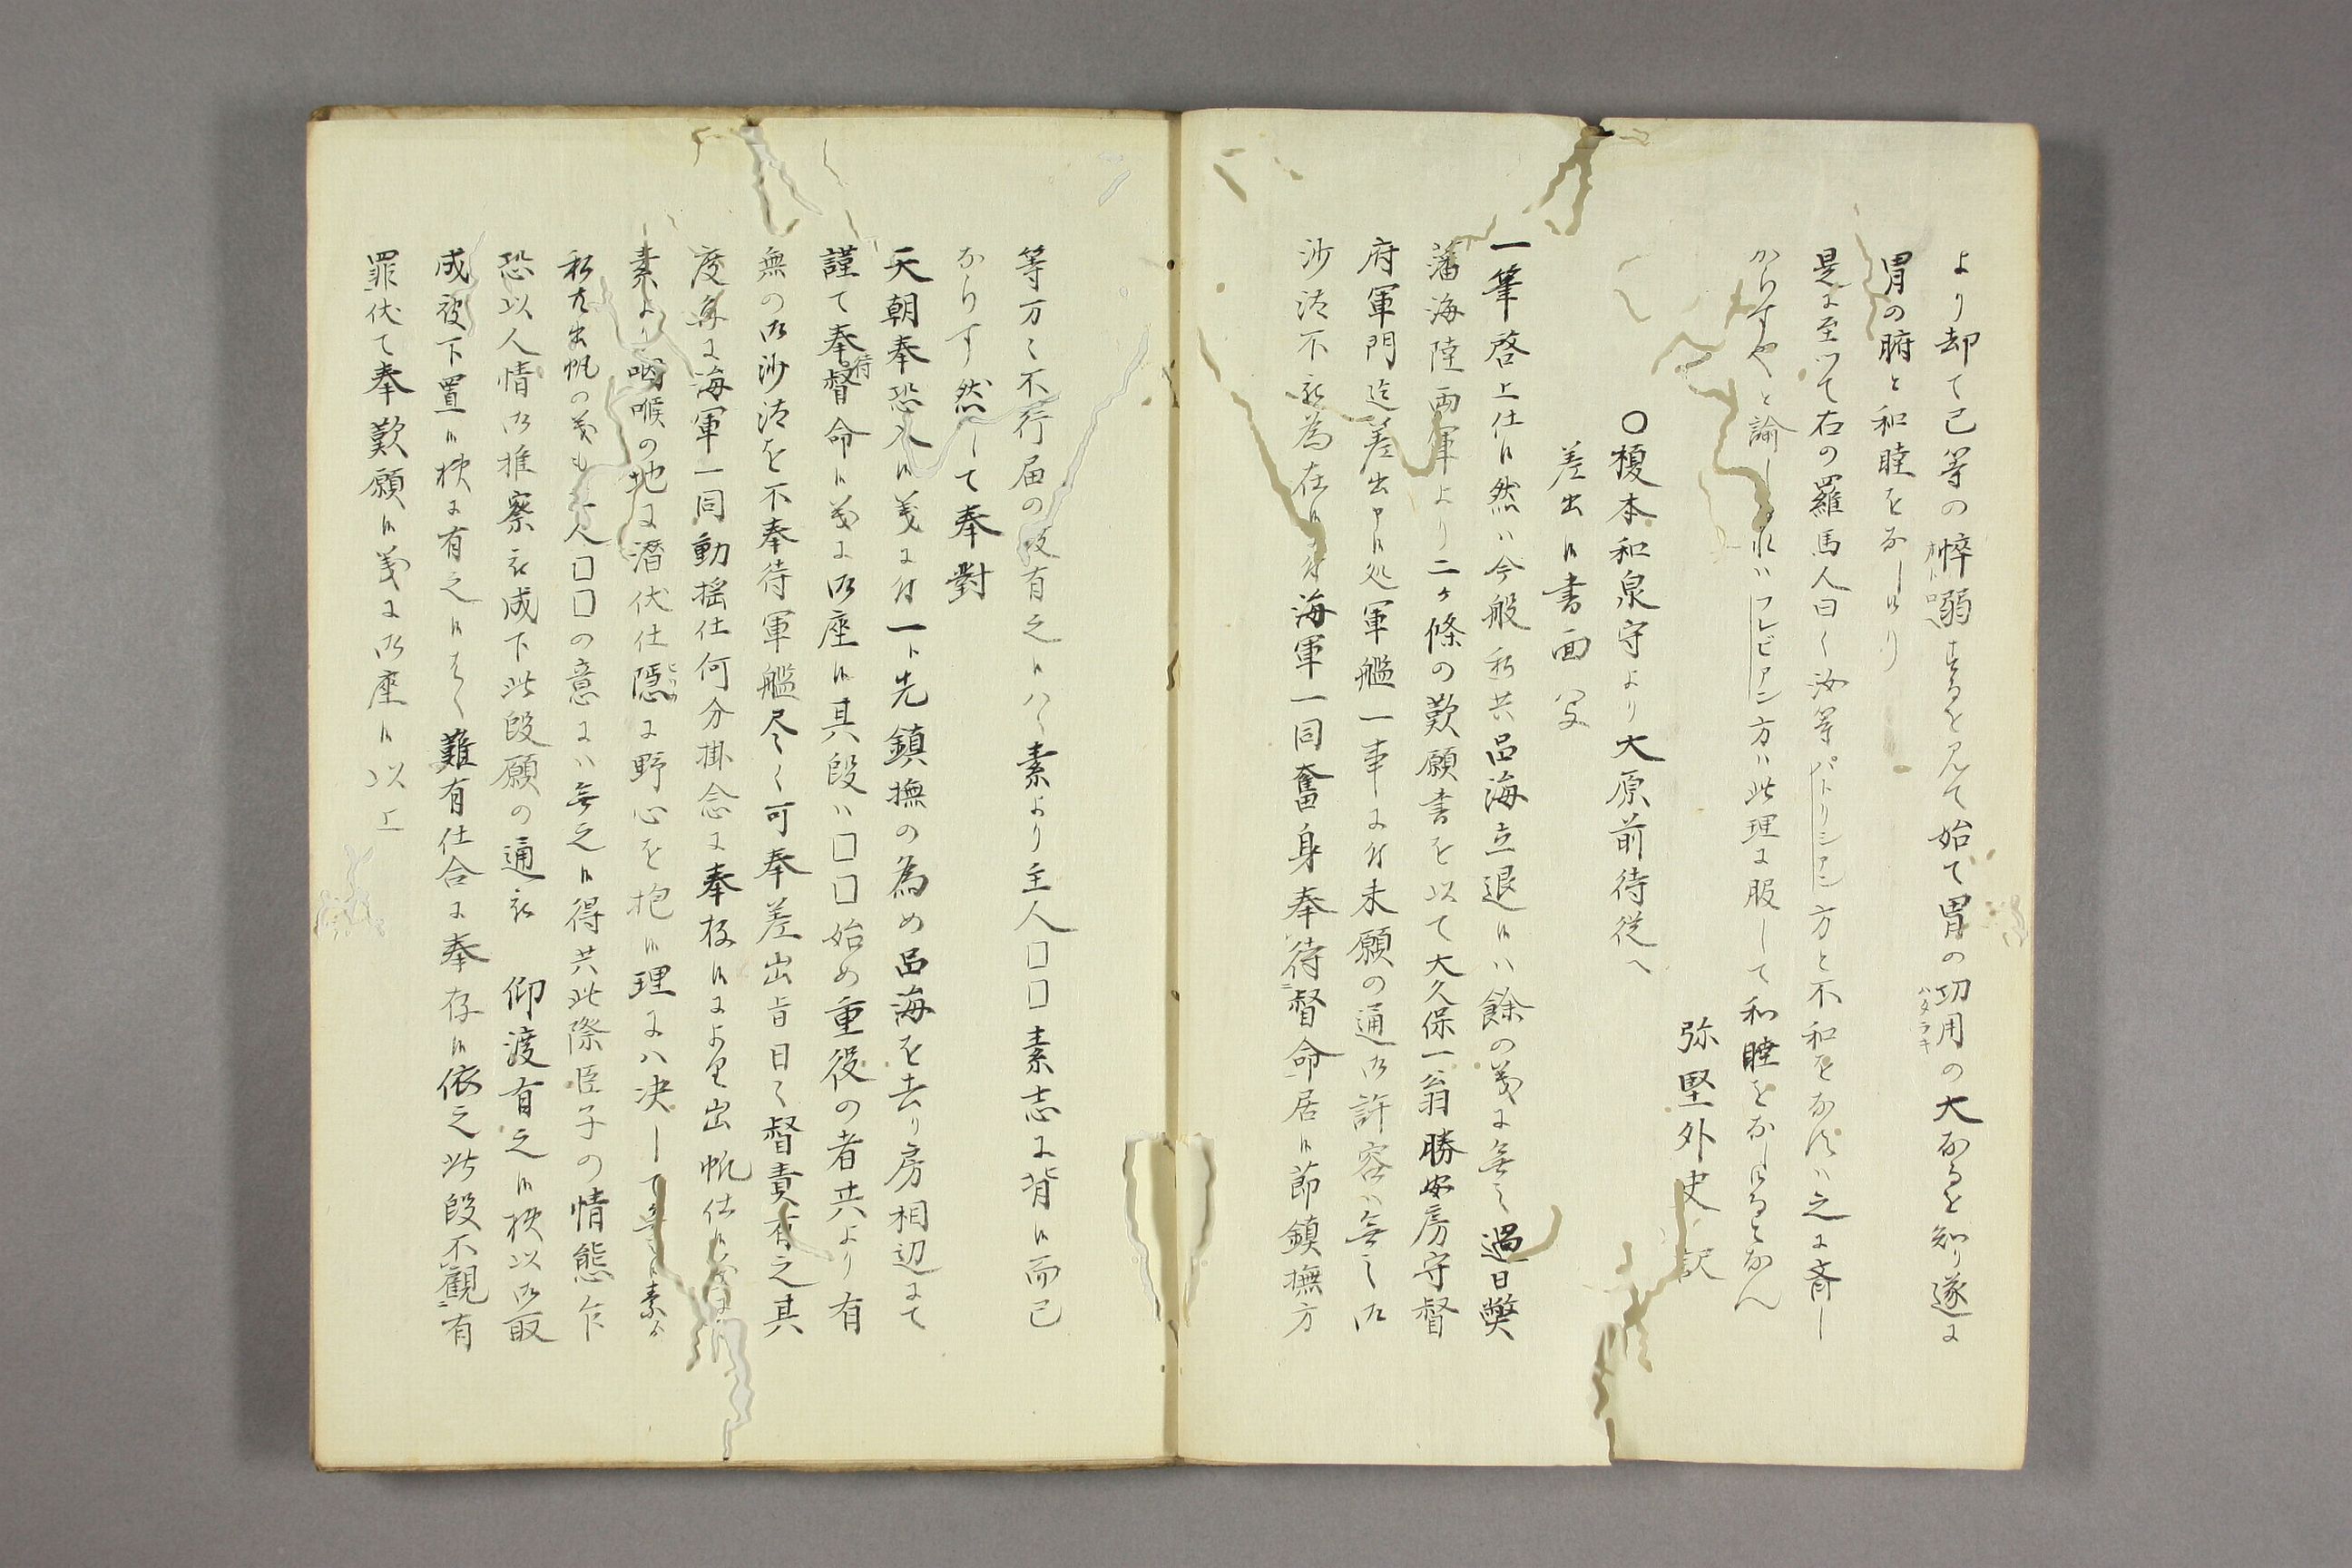 より却て己等の悴弱するを見て始て胃の切用の大なるを知り遂に
ハタラキ
胃の腑と和睦をなしけり
是に至つて右の羅馬人曰く汝等パトリシアン方と不和をなすハ之に斉し
からすやと諭しけれハフレビアン方ハ此理に服して和睦をなしけるとなん
弥堅外史訳
〇榎本和泉守より大原前侍従へ
差出候書面写
一筆啓上仕候然ハ今般私共品海立退候ハ餘の義に無之過日弊
藩海陸両軍より二ケ條の歎願書を以て大久保一翁勝安房守督
府軍門迄差出申候処軍艦一事に付未願の通御許容ハ無之御
沙汰不被為在候に付海軍一同奮身奉待督命居候節鎮撫方
等万々不行届の段有之候ハゝ素より主人□□素志に背候而已
なりす然して奉對
天朝奉恐入候義に付一ト先鎮撫の為め品海を去り房相辺にて
謹て奉待督命候義に御座候其段ハ□□始め重役の者共より有
無の御沙汰を不奉待軍艦尽く可奉差出旨日々督責有之其
度毎に海軍一同動揺仕何分掛念に奉存候により出帆仕候義に候
素より咽喉の地に潜伏仕隠に野心を抱候理にハ决して無之候素か
私共出帆の義も主人□□の意にハ無之候得共此際臣子の情態乍
恐以人情御推察被成下此段願の通被　仰渡有之候様以御取
成被下置候様に有之候ハゝ難有仕合に奉存候依之此段不観有
罪伏て奉歎願候義に御座候以上